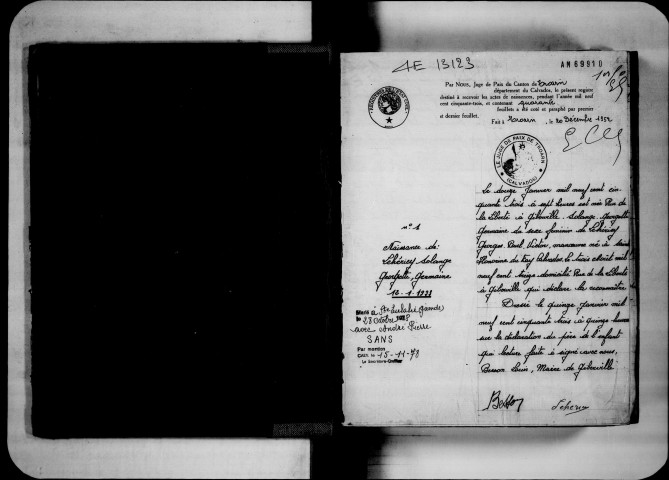 4E 13123
AM69910
PAR NOUS, Juge de Paix du Canton de Troarn
département du Calvados, le présent registre
destiné à recevoir les actes de naissances, pendant l'année mil neuf
cent cinquante-trois, et contenant quarante
feuillets a été coté et paraphé par premier
et dernier feuillet.
Fait à Troarn, le 20 Décembre 1952
LE JUGE DE PAIX DE TROARN
(CALVADOS)
n° 1
Naissance de
Lehéricey Solange
Georgette, Germaine
12-1-1953
Marié à Ste Eulalie (Gironde)
le 28 Octobre
avec André Pierre
SANS
Par mention
CAEN, le 15-11-78
Le Secrétaire-Greffier
Le douze Janvier mil neuf cent cin-
quante trois à sept heures est née Rue de
la Liberté à Giberville, Solange Georgette
Germaine du sexe féminin de Lehéricey
Georges Paul Victor, manœuvre né à Sainte
Honorine du Fay Calvados, le trois
neuf cent treize domicilié Rue de la Liberté
à Giberville qui déclare la reconnaître
Dressé le quinze janvier mil
neuf cent cinquante trois à quinze heures
sur la déclaration du père de l'enfant
qui lecture faite a signé avec nous,
Besson Louis, Maire de Giberville